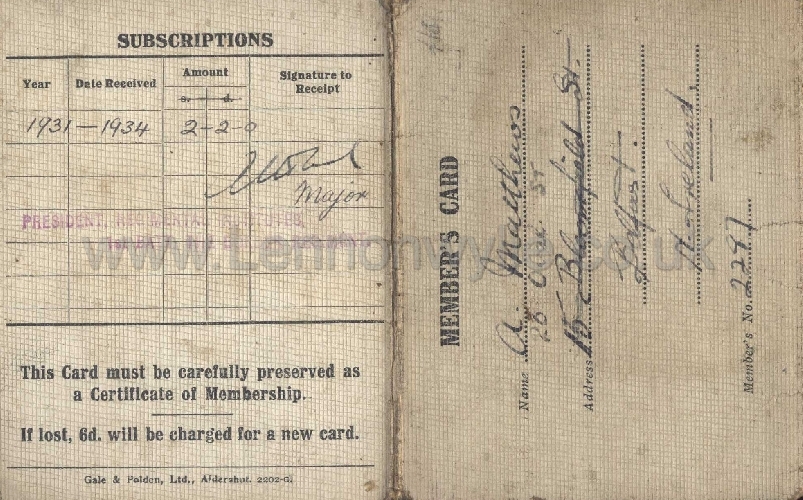 SUBSCRIPTIONS
Year Date Received Amount Signature to Receipt
s. d.
1931 — 1934 2 - 2 - 0
Major
PRESIDENT, REGIMENTAL
This Card must be carefully preserved as
a Certificate of Membership.
If lost, 6d. will be charged for a new card.
Gale & Polden, Ltd., Aldershot. 2202-G.
MEMBER'S CARD
Name A. Matthews
Address 15 Bloomfield St.
Belfast
N. Ireland.
Member's No. 2297
www.Lennonwylie.co.uk